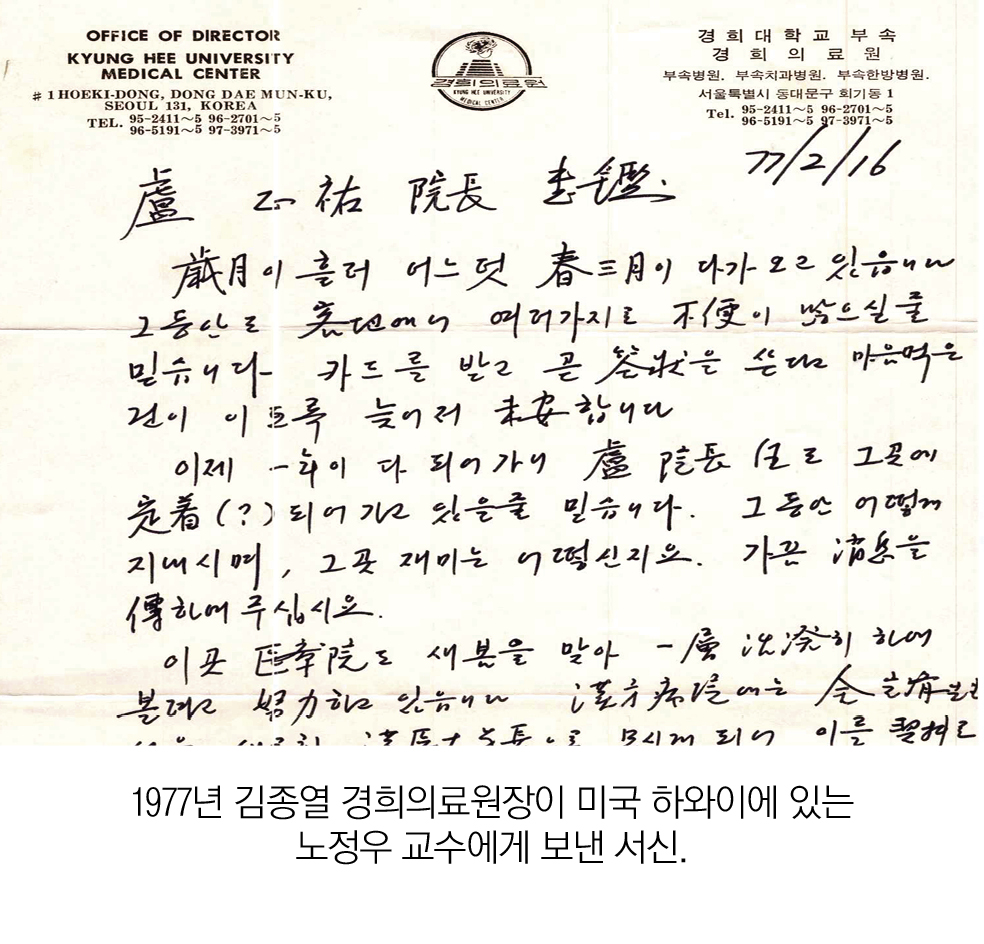 OFFICE OF DIRECTOR
KYUNG HEE UNIVERSITY
MEDICAL CENTER
#1 HOEKI-DONG, DONG DAE MUN-KU,
SEOUL 131, KOREA
TEL. 95-2411~5 96-2701~5
96-5191~5 97-3971~5
경희의료원
KYUNG HEE UNIVERSITY
MEDICAL CENTER
경희대학교 부속
경희의료원
부속병원. 부속치과병원. 부속한방병원.
서울특별시 동대문구 회기동 1
Tel. 95-2411~5 96-2701~5
96-5191~5 97-3971~5
77/2/16
盧 正祐 院長
歲月이 흘러 어느덧 春三月이 다가오고 있읍니다
그동안도 여러가지로 不便이 많으실줄
믿습니다 카드를 받고 곧 答狀을 쓴다고 마음먹은
것이 이토록 늦어저 未安합니다
이제 一年이 다 되어가니 盧 院長 그곳에
定着(?)되어가고 있을줄 믿습니다. 그동안 어떻게
지내시며, 그곳 재미는 어떻신지요. 가끔 消息을
傳하여 주십시요.
이곳 醫療院도 새봄을 맞아 一層 活潑히 하여
볼려고 努力하고 있읍니다 漢方病院에는
이를
1977년 김종열 경희의료원장이 미국 하와이에 있는
노정우 교수에게 보낸 서신.